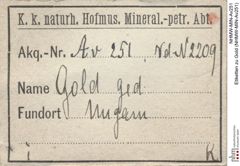 K. k. naturh. Hofmus. Mineral.-petr. Abt.
Akq.-Nr. Av 251 Vd N 2209
Name Gold ged
Fundort Ungarn
i k
NHMW-MIN-Av251
Etiketten zu Gold (NHMW-MIN-Av251)